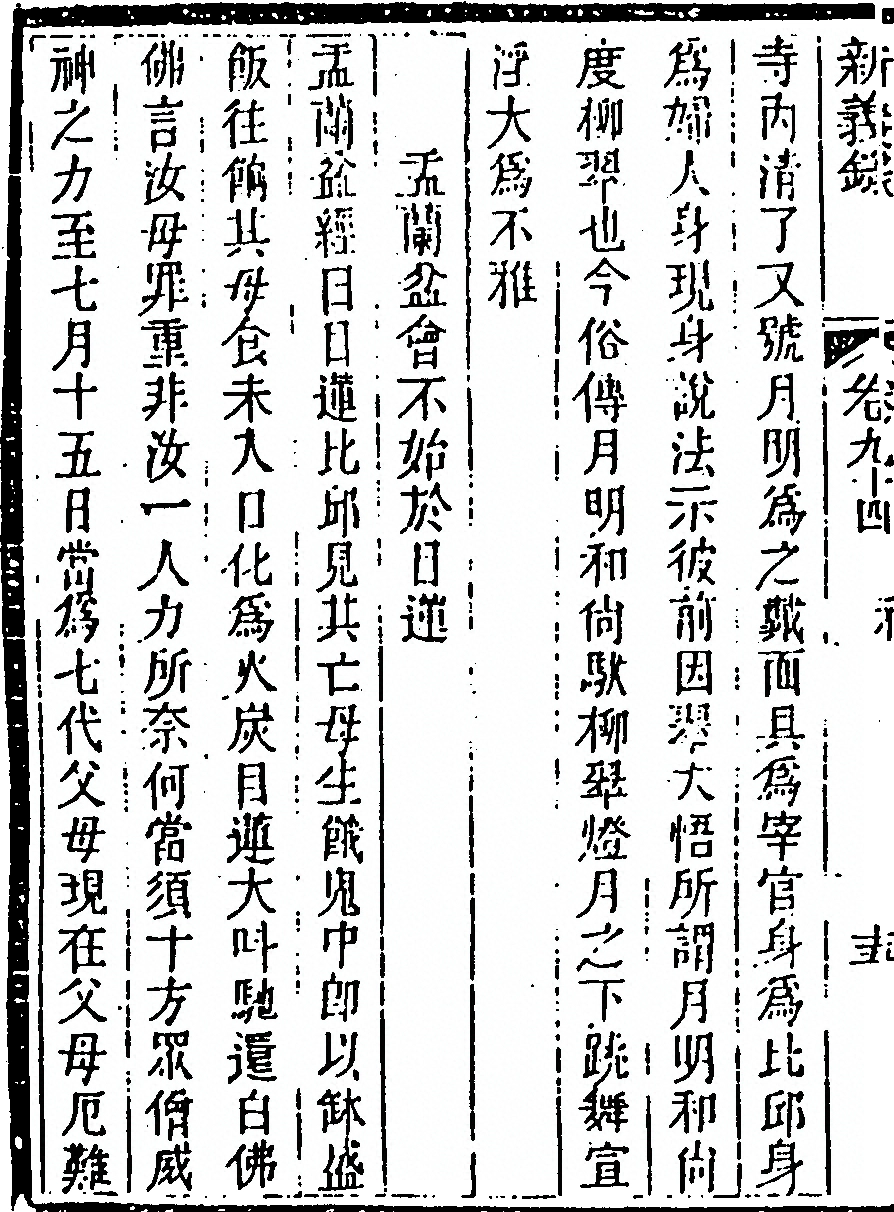 新義錄 卷九十四
寺內清了又號月明爲之戴面具爲宰官身爲比邱身
爲婦人身現身說法示彼前因翠大悟所謂月明和尚
度柳翠也今俗傳月明和尚馱柳翠燈月之下跳舞宣
淫大爲不雅
盂蘭盆會不始於目蓮
盂蘭盆經曰目蓮比邱見其亡母生餓鬼中卽以缽盛
飯往餉其母食未入口化爲火炭目蓮大叫馳還白佛
佛言汝母罪重非汝一人力所奈何當須十方眾僧威
神之力至七月十五日當爲七代父母現在父母厄難